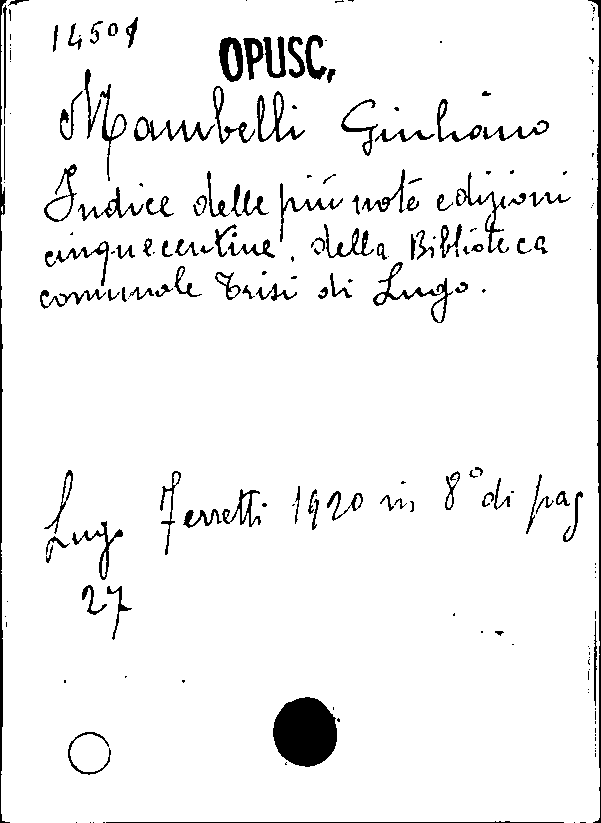 14501
OPUSC.
Mambelli Giuliano
Indice delle più note edizioni
cinquecentine della Biblioteca
comunale Trisi di Lugo.
Lugo Ferretti 1920 in 8° di pag
27